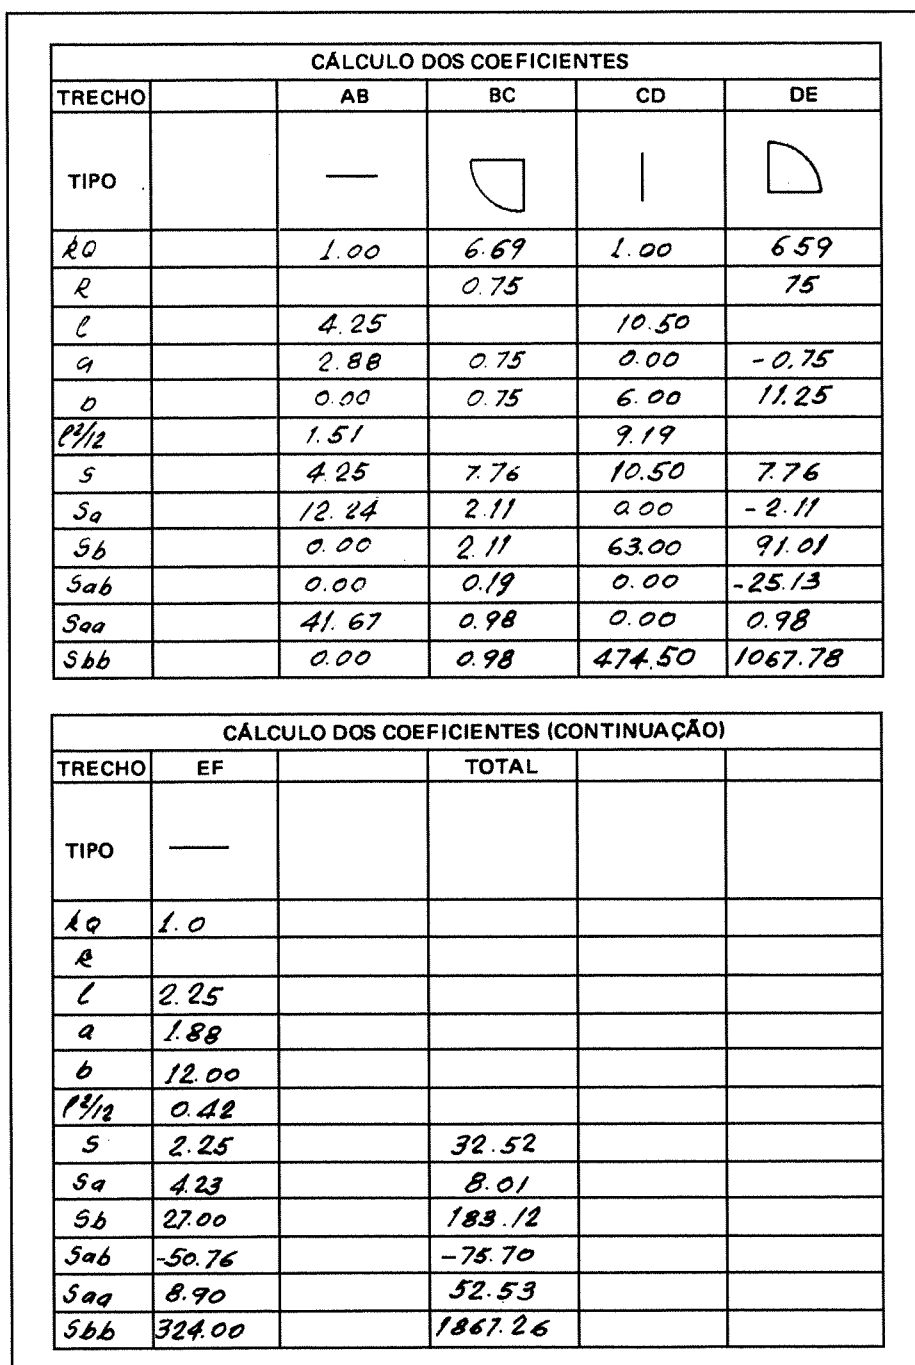 CÁLCULO DOS COEFICIENTES
TRECHO AB BC CD DE
TIPO
kQ 1.00 6.69 1.00 659
R 0.75 75
l 4.25 10.50
a 2.88 0.75 0.00 -0.75
b 0.00 0.75 6.00 11.25
l²/12 1.51 9.19
S 4.25 7.76 10.50 7.76
Sa 12.24 2.11 0.00 -2.11
Sb 0.00 2.11 63.00 91.01
Sab 0.00 0.19 0.00 -25.13
Saa 41.67 0.98 0.00 0.98
Sbb 0.00 0.98 474.50 1067.78
CÁLCULO DOS COEFICIENTES (CONTINUAÇÃO)
TRECHO EF TOTAL
TIPO
kQ 1.0
R
l 2.25
a 1.88
b 12.00
l²/12 0.42
S 2.25 32.52
Sa 4.23 8.01
Sb 27.00 183.12
Sab -50.76 -75.70
Saa 8.90 52.53
Sbb 324.00 1867.26